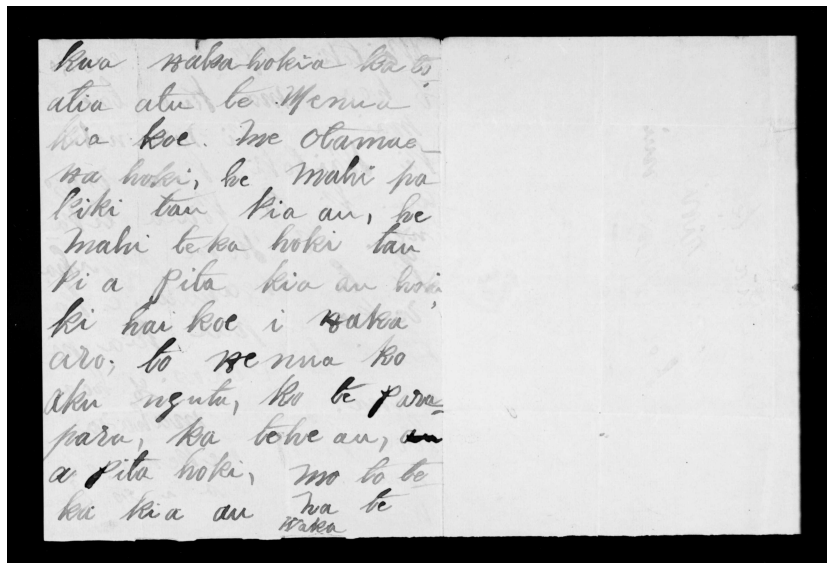 kua wakahokia
atia atu te Wenua
kia koe. me Otamae_
wa hoki, he Mahi pa
kiki tau kia au, he
Mahi teka hoki tau
ki a Pita kia au hoki
ki hai koe i waka
aro, to wenua ko
aku ngutu, ko te para=
para, ka tehe au,
a Pita hoki, mo to te_
ka kia au na te
waka